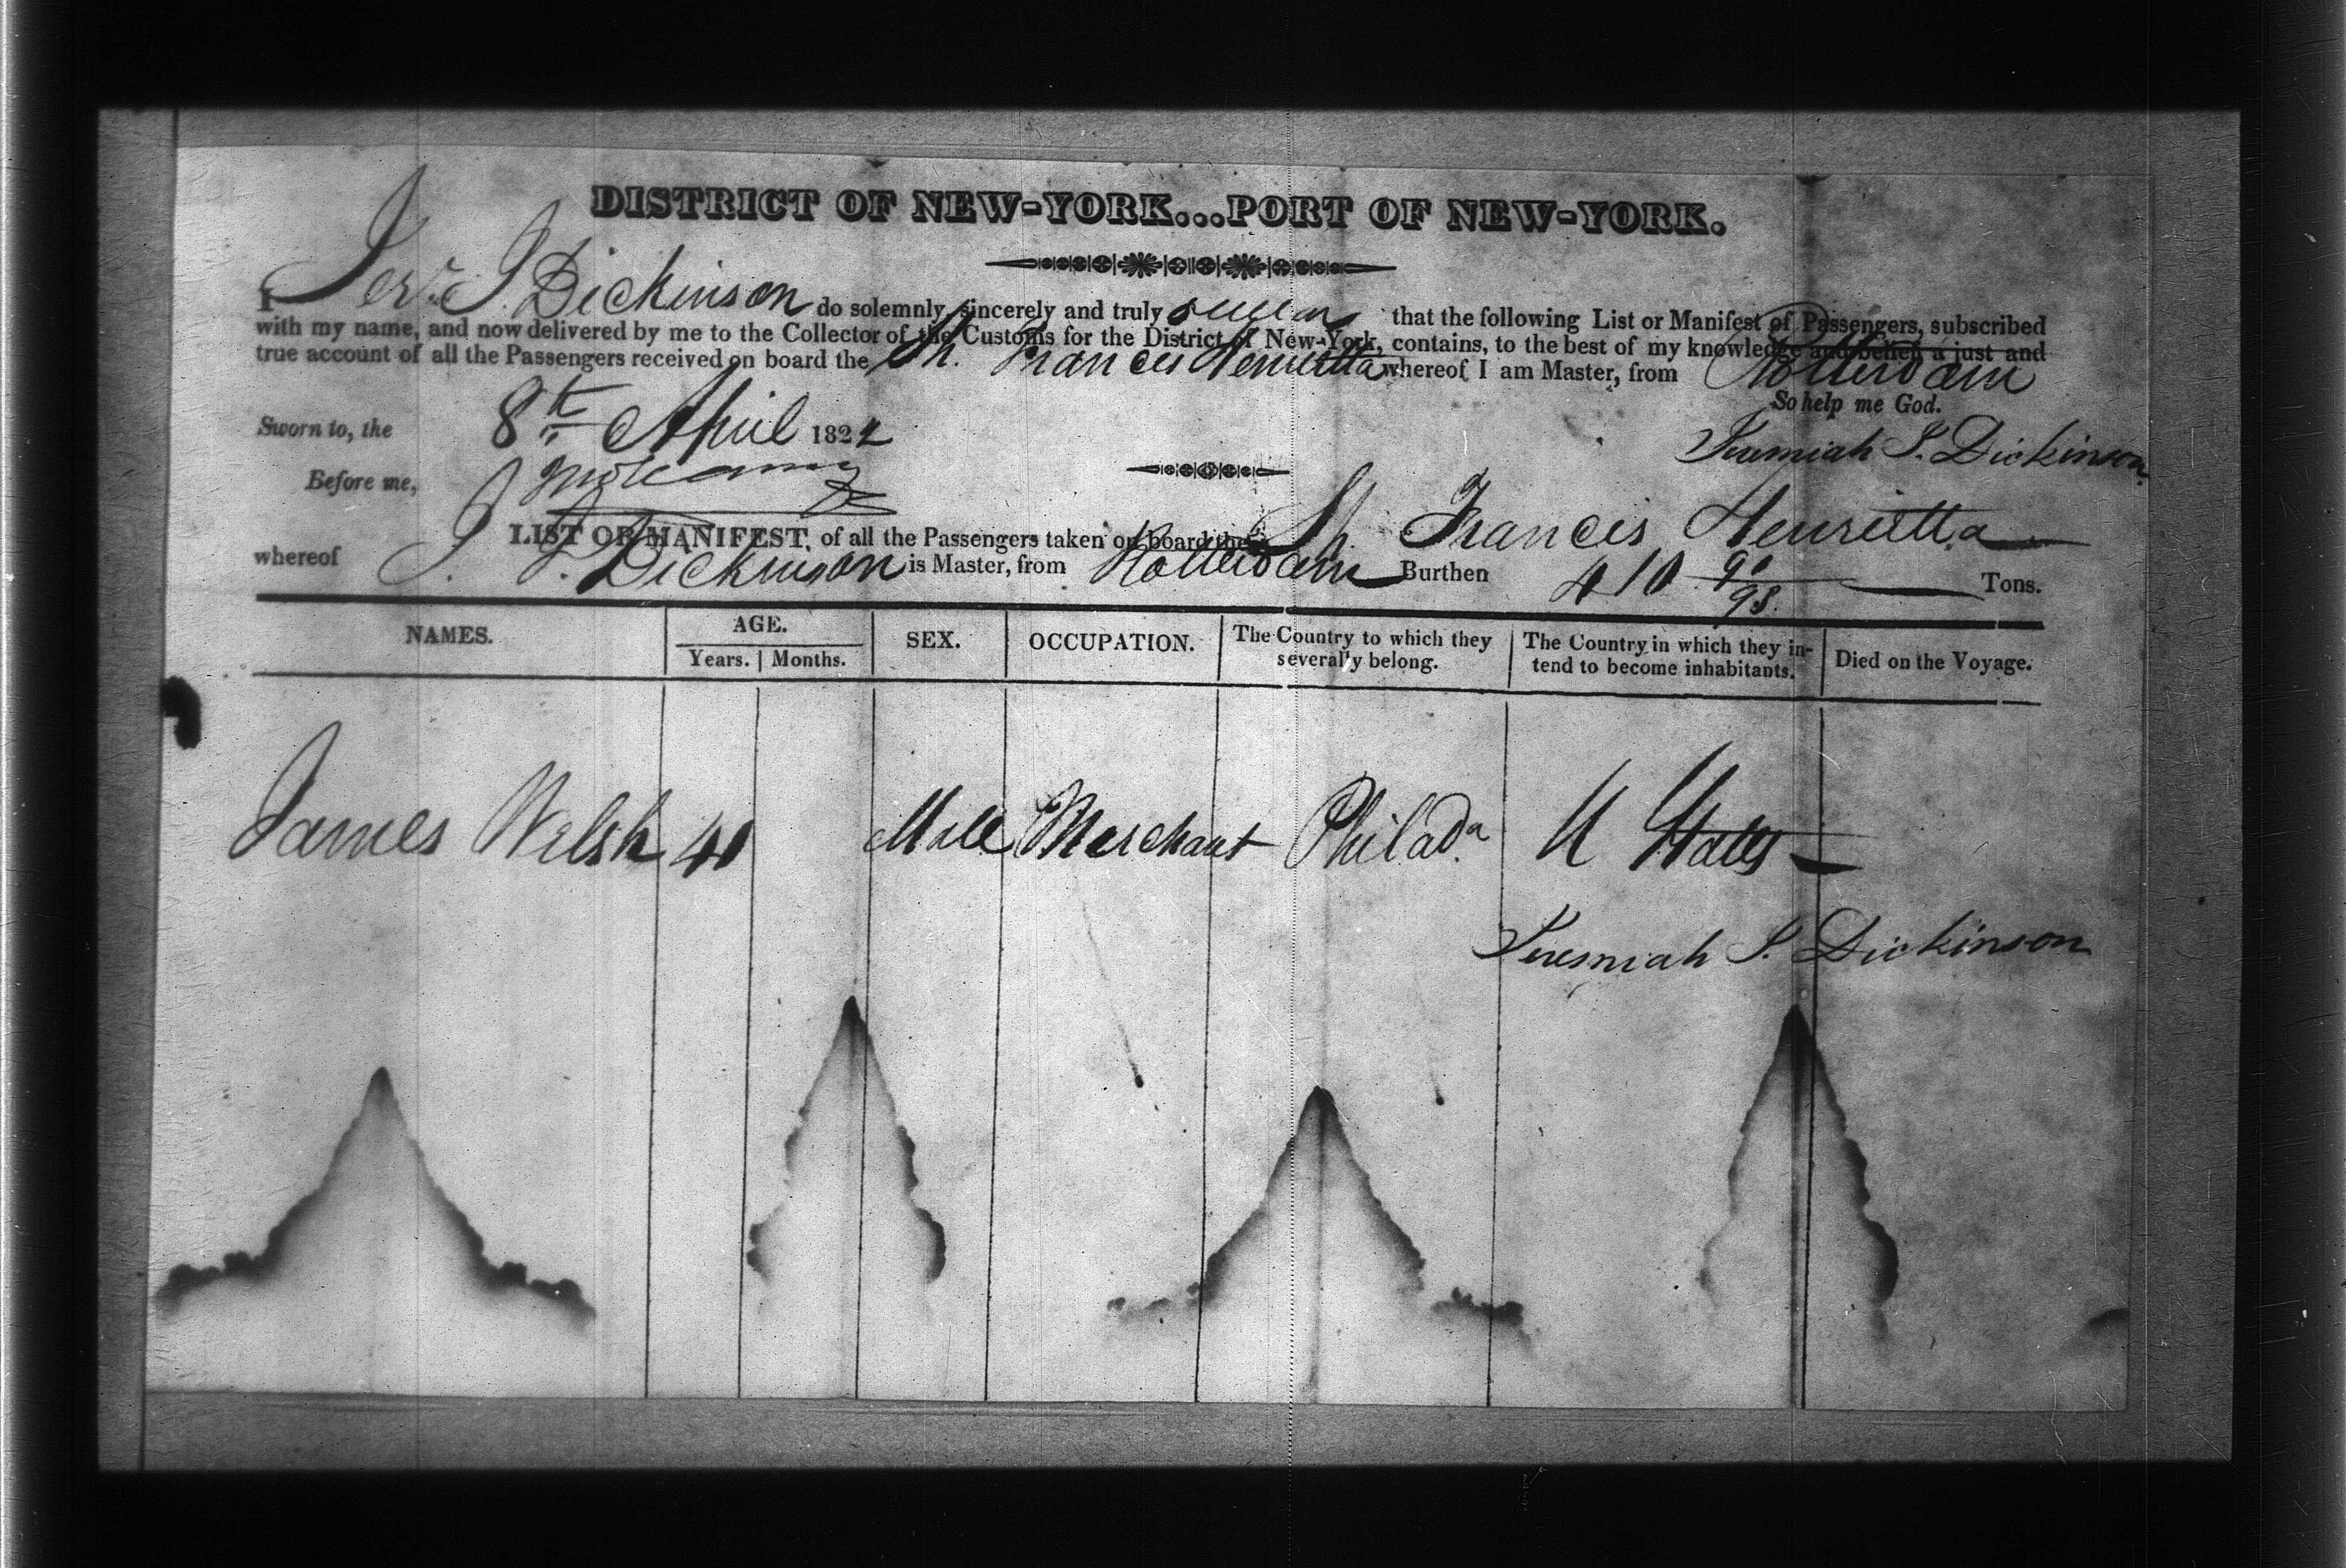 DISTRICT OF NEW-YORK...PORT OF NEW-YORK.
I Jer. J. Dickinson do solemnly, sincerely and truly swear that the following List or Manifest of Passengers, subscribed
with my name, and now delivered by me to the Collector of the Customs for the District of New-York, contains, to the best of my knowledge and belief, a just and
true account of all the Passengers received on board the Sh. Francis Henrietta whereof I am Master, from Rotterdam
So help me God.
Sworn to, the 8th April 1824
Jeremiah J. Dickinson
Before me,
LIST OR MANIFEST, of all the Passengers taken on board the Sh. Francis Henrietta
whereof J. J. Dickinson is Master, from Rotterdam Burthen 410 90/95 Tons.
NAMES. AGE. SEX. OCCUPATION. The Country to which they severally belong. The Country in which they intend to become inhabitants. Died on the Voyage.
Years. Months.
James Welsh 40 Male Merchant Philada. U States
Jeremiah J. Dickinson